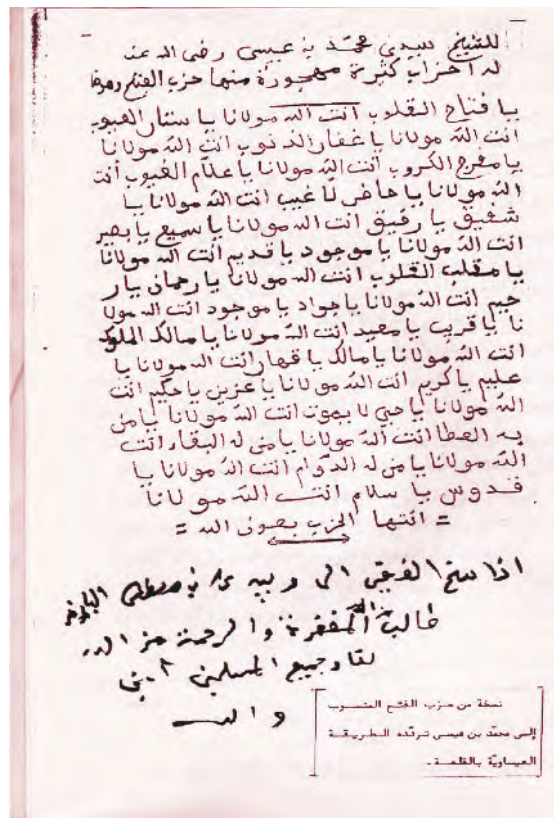 للشيخ سيدي محمد بن عيسى رضى الله عنه
له احزاب كثيرة مهجورة منها حزب الفتح وهو هذا
يا فتاح القلوب انت الله مولانا يا ستار العيوب
انت الله مولانا يا غفار الذنوب انت الله مولانا
يا مفرج الكروب أنت الله مولانا يا علّام الغيوب أنت
الله مولانا يا حاضر لا غيب انت الله مولانا يا
شفيق يا رفيق انت الله مولانا يا سميع يا بصير
انت الله مولانا يا موجود يا قديم انت الله مولانا
يا مقلب القلوب انت الله مولانا يا رحمان يا ر
حيم انت الله مولانا يا جواد يا موجود انت الله مولا
نا يا قريب يا معيد انت الله مولانا يا مالك الملوك
انت الله مولانا يا مالك يا قهار انت الله مولانا يا
عليم يا كريم انت الله مولانا يا عزيز يا حكيم انت
الله مولانا يا حي لا يموت انت الله مولانا يا من
به العطا انت الله مولانا يا من له البقاء انت
الله مولانا يا من له الدوام انت الله مولانا يا
قدوس يا سلام انت الله مولانا
= انتها الحزب بعون الله =
الفقير الى ربه
طالب المغفرة والرحمة من الله
لنا و جميع المسلمين آمين
نسخة من حزب الفتح المنسوب
إلى محمّد بن عيسى تردّده الطريقة
العيساويّة بالقلعة.